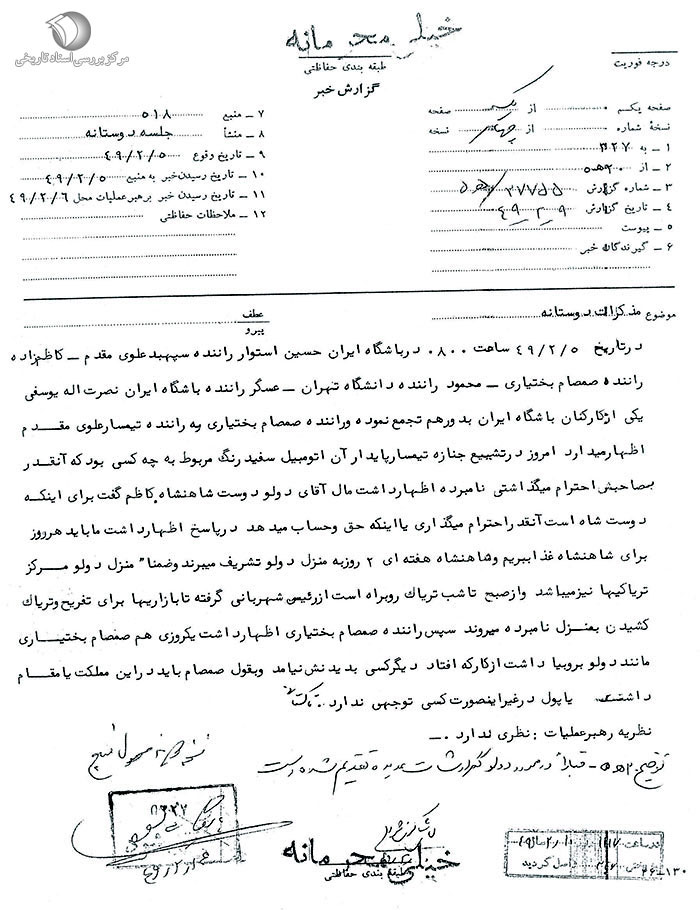 مرکز بررسی اسناد تاریخی
خیلی محرمانه
طبقه بندی حفاظتی
گزارش خبر
درجه فوریت
صفحه یکم از یک صفحه
نسخهٔ شماره از چهار نسخه
۱ - به ۳۲۷
۲ - از ۲۰ ه ۵
۳ - شماره گزارش
۴ - تاریخ گزارش ۴۹٫۲٫۹
۵ - پیوست
۶ - گیرندگان خبر
۷ - منبع ۵۱۸
۸ - منشأ جلسه دوستانه
۹ - تاریخ وقوع ۴۹/۲/۵
۱۰ - تاریخ رسیدن خبر به منبع ۴۹/۲/۵
۱۱ - تاریخ رسیدن خبر برهبر عملیات محل ۴۹/۲/۶
۱۲ - ملاحظات حفاظتی
موضوع مذکرات دوستانه
عطف
پیرو
درتاریخ ۴۹/۲/۵ ساعت ۰۸۰۰ درباشگاه ایران حسین استوار راننده سپهبد علوی مقدم - کاظم زاده
راننده صمصام بختیاری - محمود راننده دانشگاه تهران - عسگر راننده باشگاه ایران نصرت اله یوسفی
یکی ازکارکنان باشگاه ایران بدورهم تجمع نموده وراننده صمصام بختیاری به راننده تیمسارعلوی مقدم
اظهارمیدارد امروز درتشییع جنازه تیمسارپایدار آن اتومبیل سفیدرنگ مربوط به چه کسی بود که آنقدر
بصاحبش احترام میگذاشتی نامبرده اظهارداشت مال آقای دولو دوست شاهنشاه کاظم گفت برای اینکه
دوست شاه است آنقدراحترام میگذاری یااینکه حق وحساب میدهد درپاسخ اظهارداشت ماباید هرروز
برای شاهنشاه غذاببریم وشاهنشاه هفته ای ۲ روزبه منزل دولو تشریف میبرند وضمنا" منزل دولو مرکز
تریاکیها نیزمیباشد وازصبح تاشب تریاك روبراه است ازرئیس شهربانی گرفته تابازاریها برای تفریح وتریاك
کشیدن بمنزل نامبرده میروند سپس راننده صمصام بختیاری اظهارداشت یکروزی هم صمصام بختیاری
مانند دولو بروبیا داشت ازکارکه افتاد دیگرکسی بدیدنش نیامد وبقول صمصام باید دراین مملکت یامقام
داشت یاپول درغیراینصورت کسی توجهی ندارد.
نظریه رهبرعملیات : نظری ندارد . -
توضیح ۲۰ ه ۵ - قبلاً در مورد دولو گزارشات عدیده تقدیم شده است
خیلی محرمانه
طبقه بندی حفاظتی
۲۶-۱۳۰